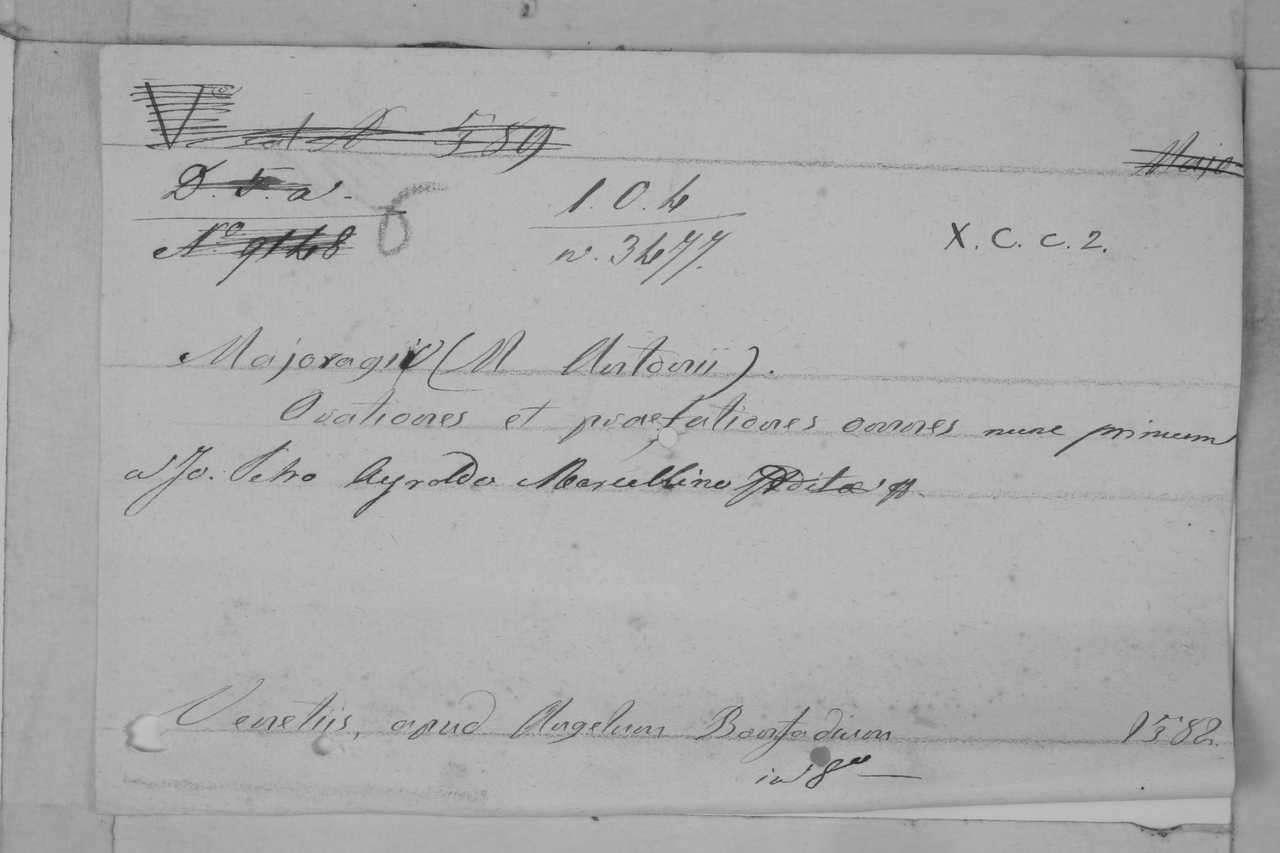 V d N 589
Majo
D. F. a.
Nº 9148
1. O. 4
n. 3477.
X. C. c. 2.
Majoragii (M Antonii).
Orationes et praefationes omnes nunc primum
a Jo. Petro Ayroldo Marcellino editae
Venetiis, apud Angelum Bonfadium 1582.
in 8º